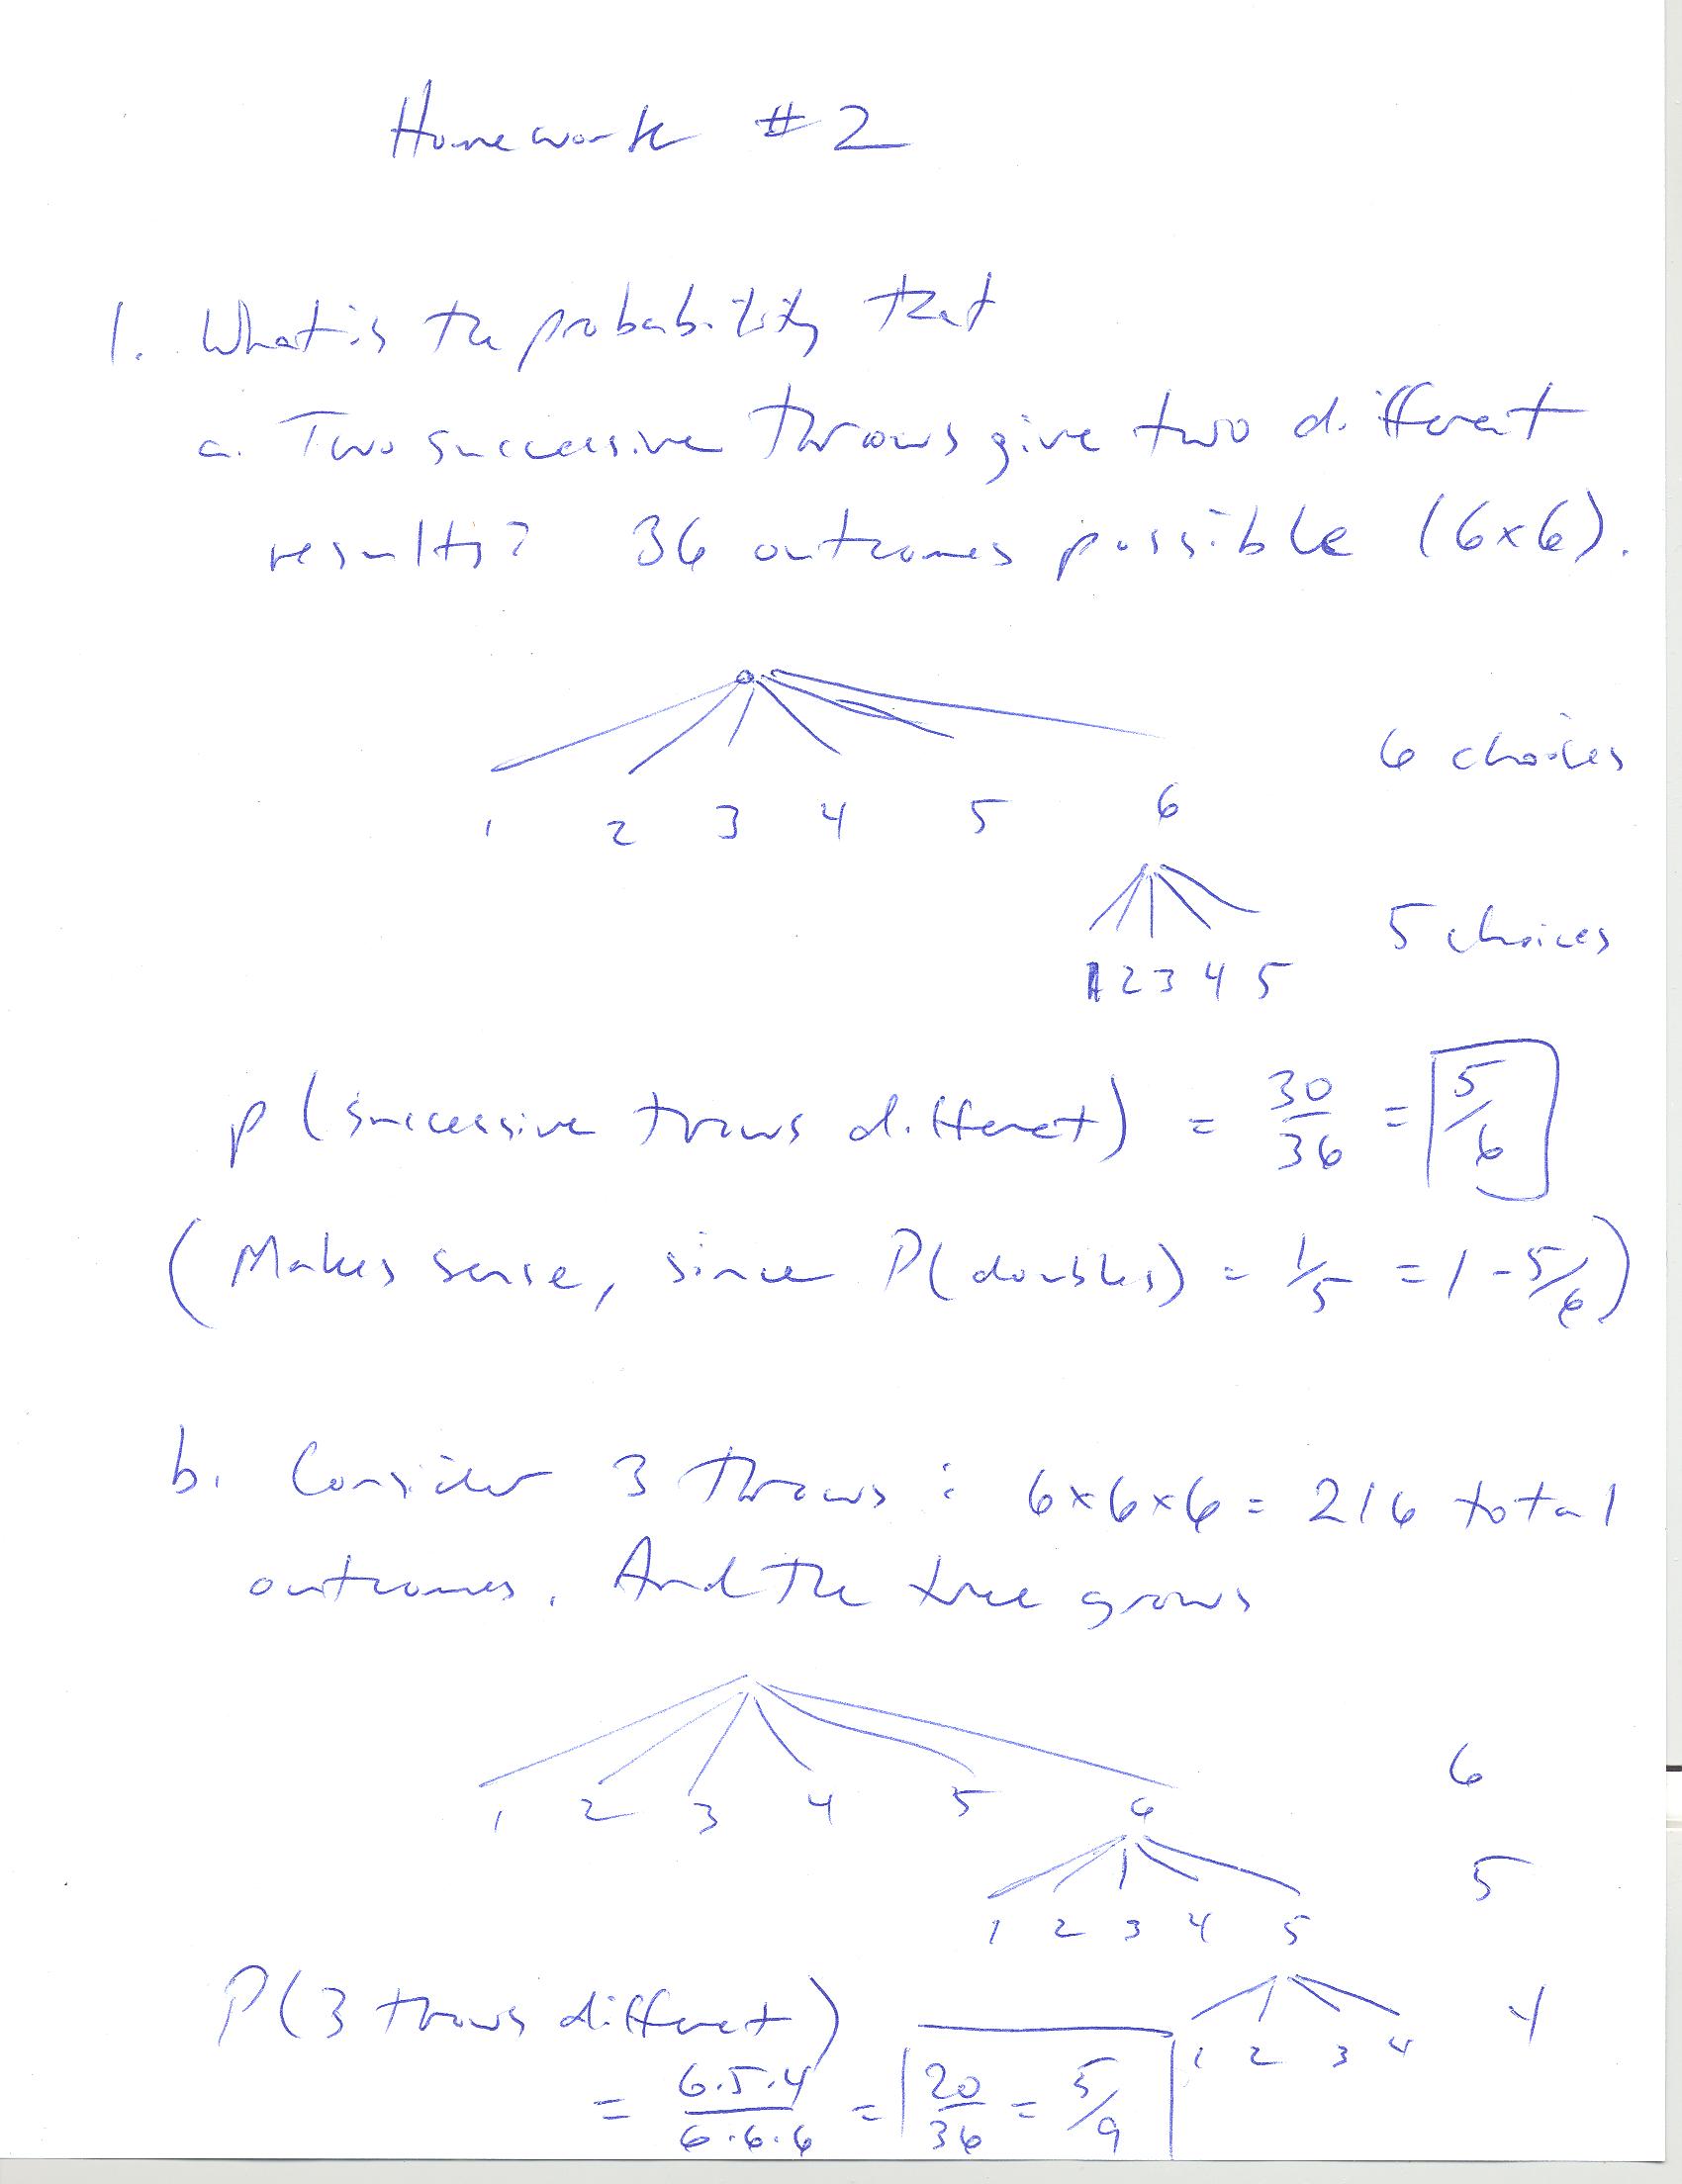 Homework #2
1. What is the probability that
a. Two successive throws give two different
results? 36 outcomes possible (6x6).
6 choices
1 2 3 4 5 6
5 choices
1 2 3 4 5
p(successive throws different) = 30/36 = 5/6
(Makes sense, since P(doubles) = 1/5 = 1 - 5/6)
b. Consider 3 throws: 6x6x6 = 216 total
outcomes. And the tree grows
1 2 3 4 5 6 6
5
1 2 3 4 5
P(3 throws different) 4
1 2 3 4
= 6.5.4/6.6.6 = 20/36 = 5/9